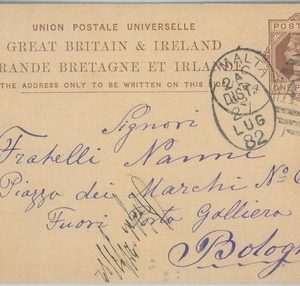 UNION POSTALE UNIVERSELLE
GREAT BRITAIN & IRELAND
RANDE BRETAGNE ET IRLA
THE ADDRESS ONLY TO BE WRITTEN ON THIS
MALTA
LUG
82
Signori
Fratelli Nanni
Piazza dei Marchi No 6
Fuori Porta Galliera
Bologn